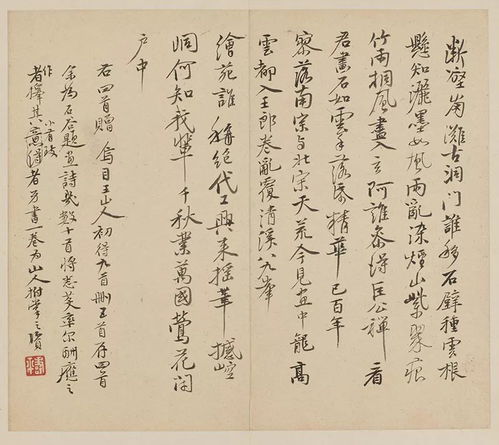 斷壑崗灘古洞門誰移石壁種雲根
懸知灑墨如風雨亂染煙山紫翠痕
竹雨桐風盡入玄阿誰參得巨公禪看
君畫石如雲手落精華已百年
寥落南宗与北宗天荒今見畫中龍高
雲都入王郎卷亂覆清溪八九峯
繪苑誰稱絕代工興來揺筆撼崆
峒何知我輩千秋業萬國鶯花閉
户中
右四首贈烏目王山人初得九首刪五首存四首
余為石谷題畫詩數十首將忘其率尔酬應之
作小有致
者擇其意得者另書一卷為山人拊掌之資